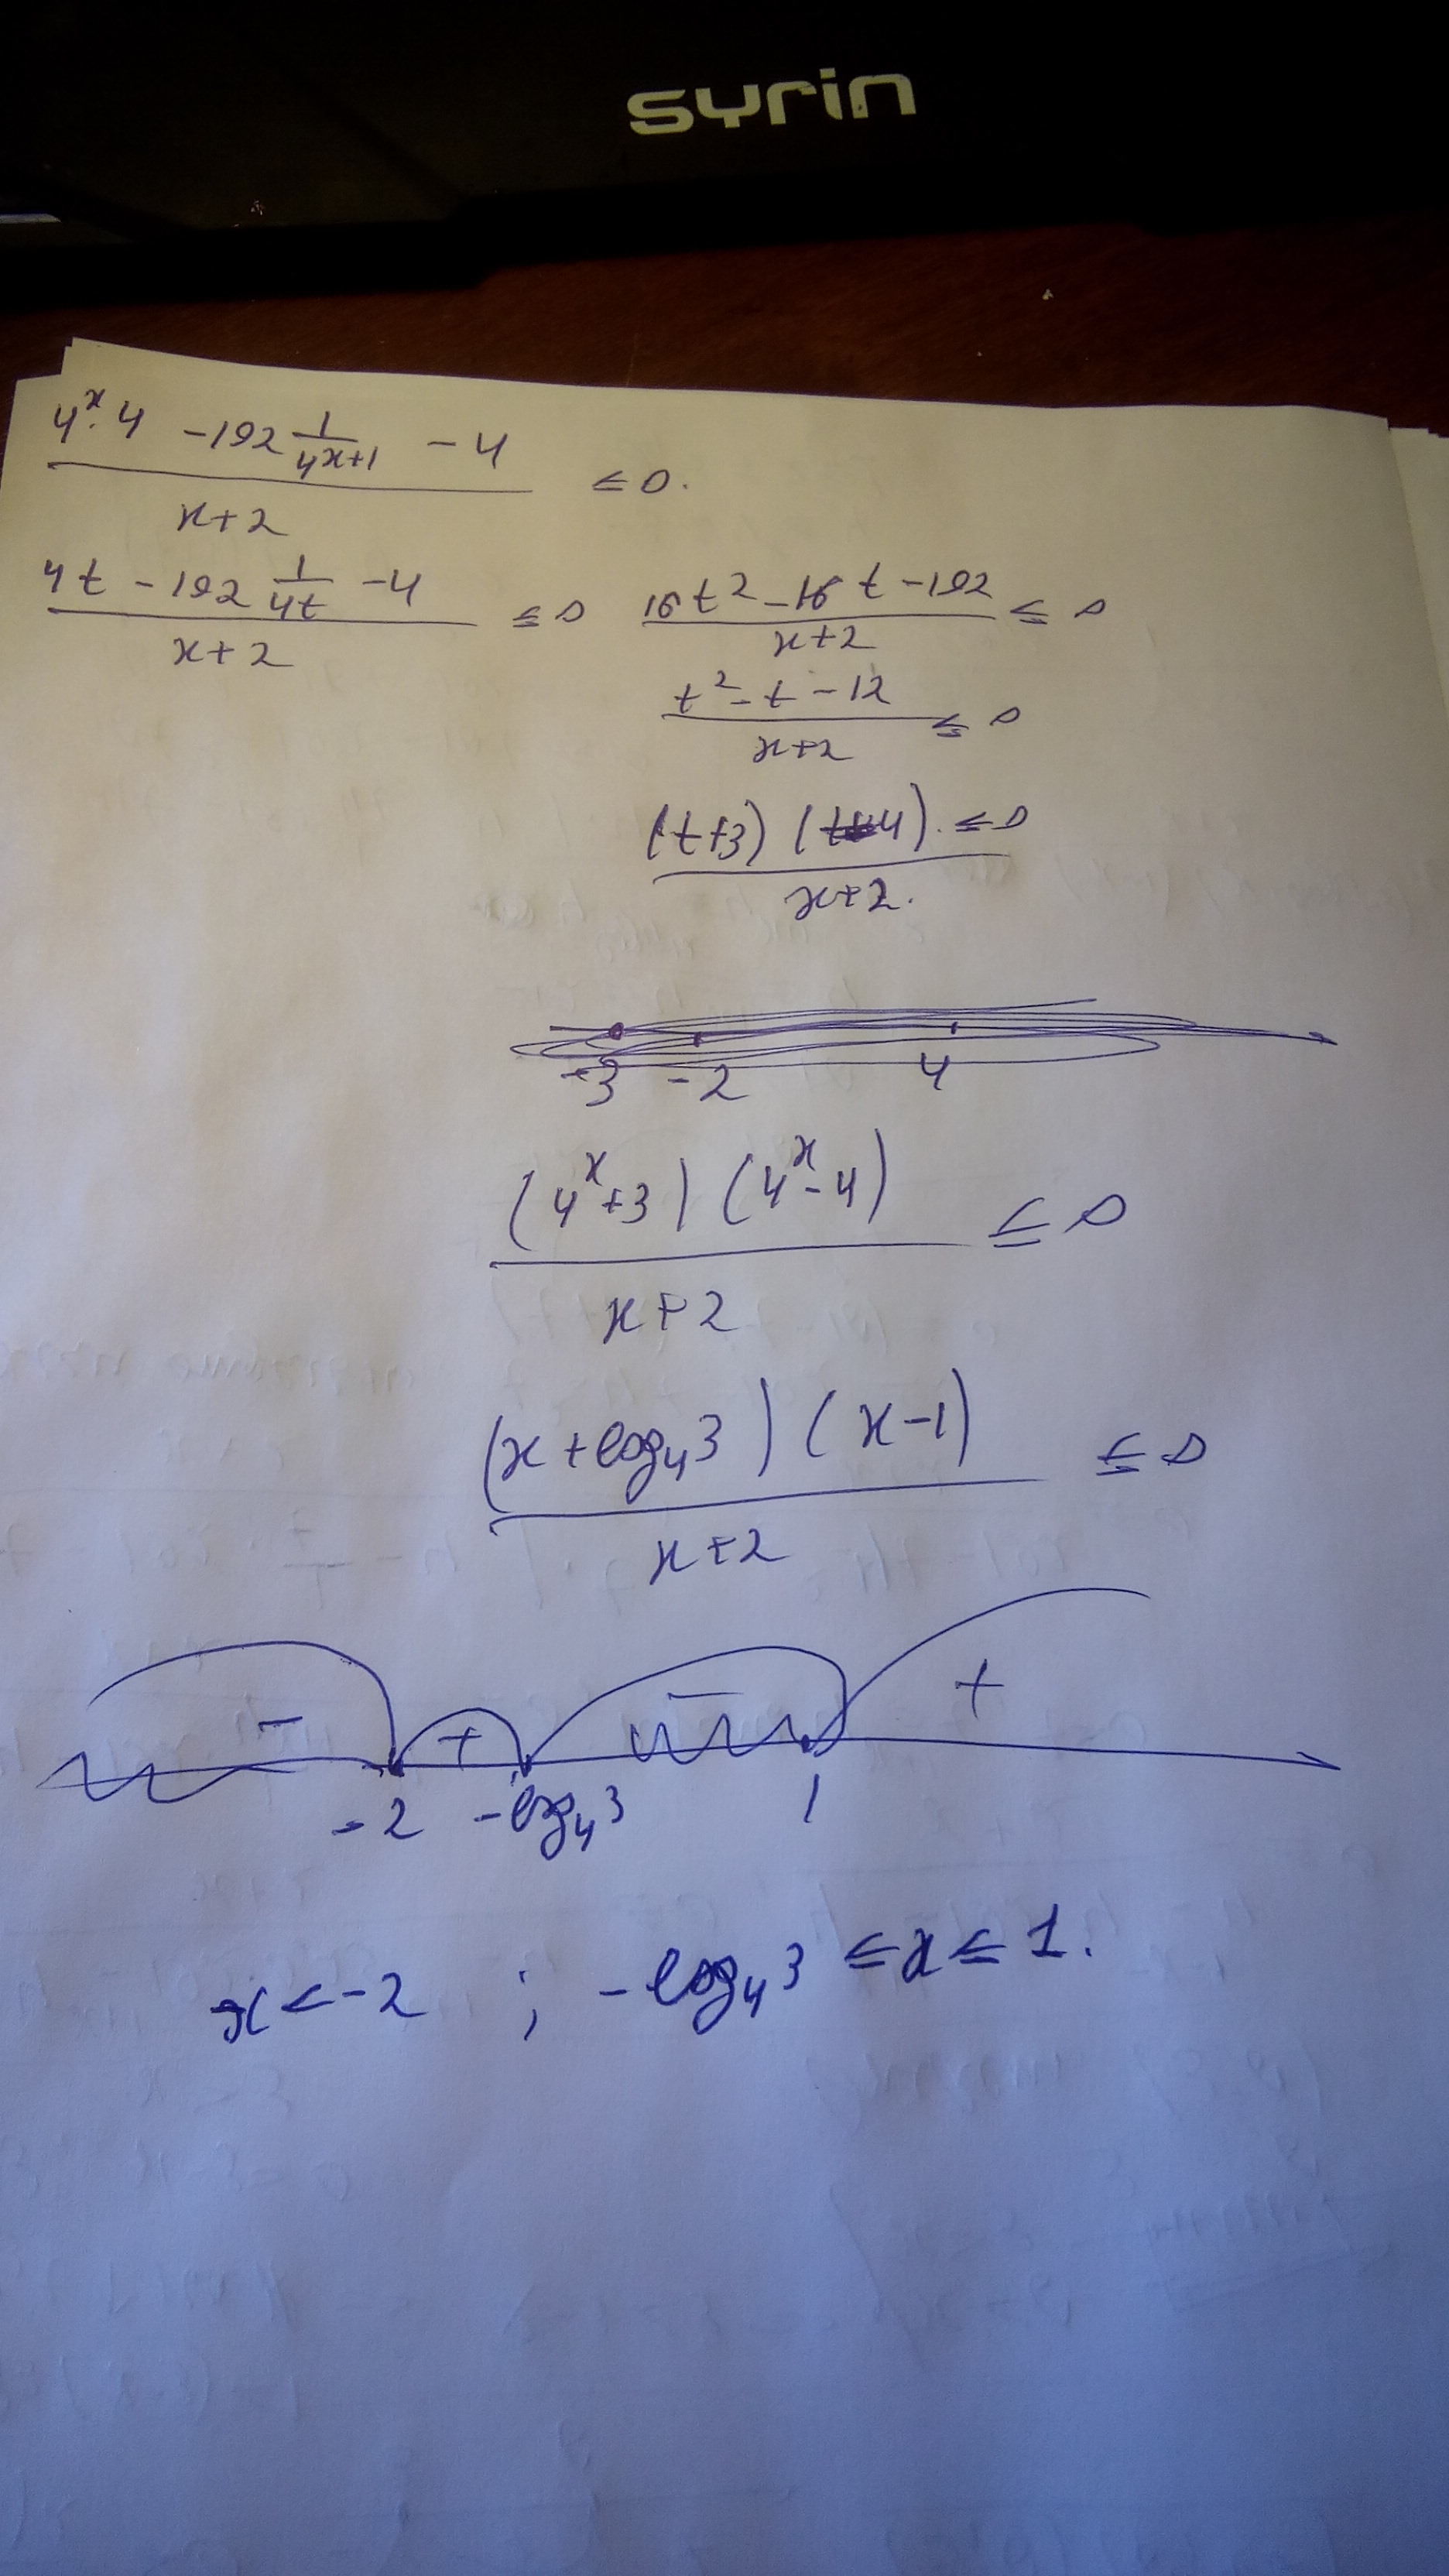 syrin
(4^x · 4 - 192 1/4^(x+1) - 4)/(x+2) ≤ 0.
(4t - 192 1/(4t) - 4)/(x+2) ≤ 0
(16t² - 16t - 192)/(x+2) ≤ 0
(t² - t - 12)/(x+2) ≤ 0
(t+3)(t-4)/(x+2) ≤ 0
-3 -2 4
(4^x+3)(4^x-4)/(x+2) ≤ 0
(x+log₄3)(x-1)/(x+2) ≤ 0
- + - +
-2 -log₄3 1
x<-2 ; -log₄3 ≤x≤ 1.